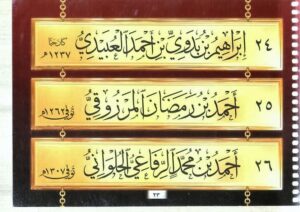 ٢٤ إبراهيم بن بدوي بن أحمد العبيدي كان حيًا ١٢٣٧هـ
٢٥ أحمد بن رمضان المرزوقي توفي ١٢٦٢هـ
٢٦ أحمد بن محمد الرفاعي الحلواني توفي ١٣٠٧هـ
٢٣